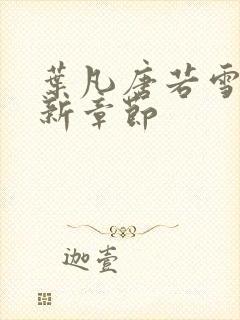 葉凡唐若雪
新章節
迦壹